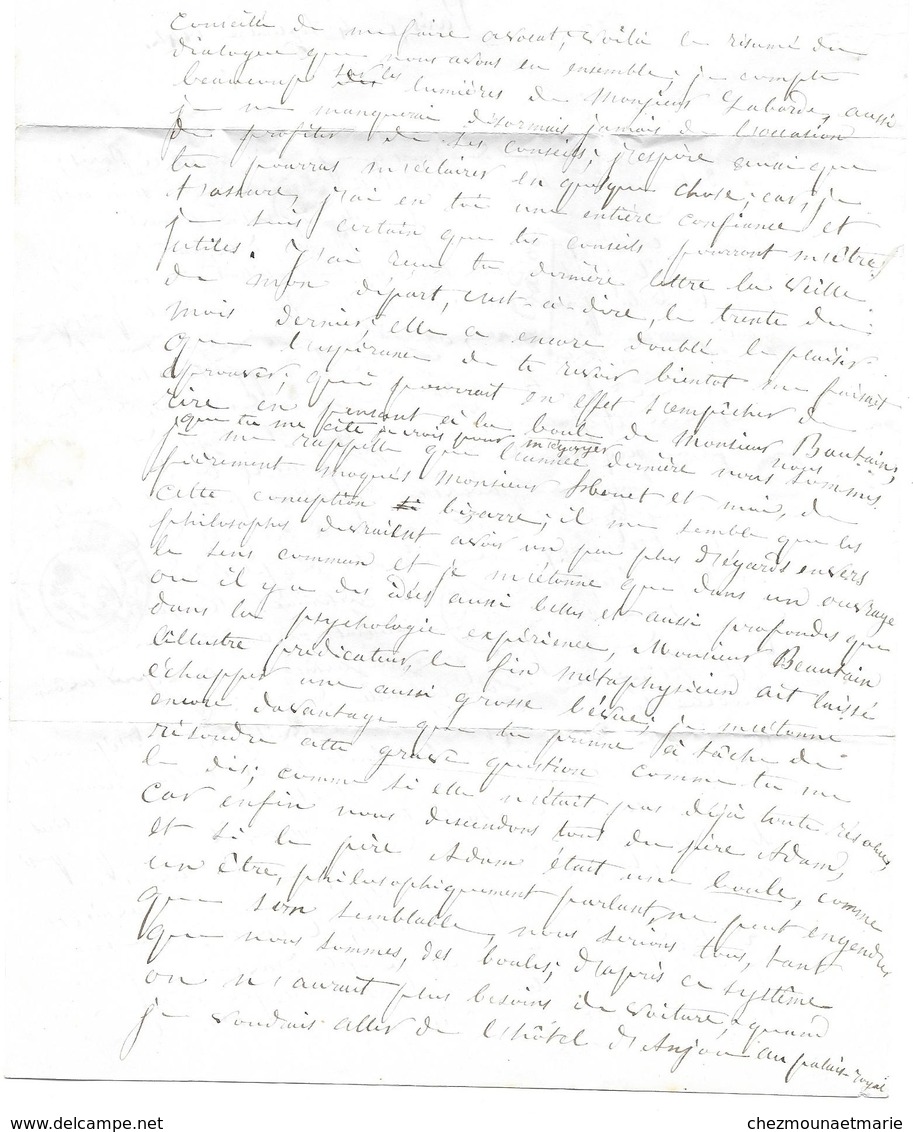 conseillé de me faire avocat; voilà le résumé du
dialogue que nous avons eu ensemble; je compte
beaucoup sur les lumières de Monsieur Laborde, aussi
je ne manquerai désormais jamais de l'occasion
de profiter de ses conseils; j'espère aussi que
tu pourras m'éclairer en quelque chose; car, je
t'assure, j'ai en toi une entière confiance et
je suis certain que tes conseils pourront m'être
utiles. J'ai reçu ta dernière lettre la veille
de mon départ, c'est-à-dire, le trente du
mois dernier; elle a encore doublé le plaisir
que l'espérance de te revoir bientot me faisait
éprouver; qui pourrait en effet s'empêcher de
rire en pensant à la boule de Monsieur Bautain,
que tu me cite je crois pour m'égayer
je me rappelle que l'année dernière nous nous sommes
fièrement moqués Monsieur et moi, de
cette conception bizarre; il me semble que les
philosophes devraient avoir un peu plus d'égards envers
le sens commun et je m'étonne que dans un ouvrage
où il y a des idées aussi belles et aussi profondes que
dans la psychologie expérience, Monsieur Beautain
l'illustre prédicateur, le fin métaphysicien ait laissé
échapper une aussi grosse bévue; je m'étonne
encore davantage que tu prenne à tâche de
résoudre cette grave question comme tu me
le dis; comme si elle n'était pas déjà toute résolue,
car enfin nous descendons tous du père Adam,
et si le père Adam était une boule, comme
un être, philosophiquement parlant, ne peut engendrer
que son semblable, nous serions tous, tant
que nous sommes, des boules; d'après ce système
on n'aurait plus besoins de voiture; quand
je voudrais aller de l'hôtel d'Anjou au palais-royal
chezmounaetmarie